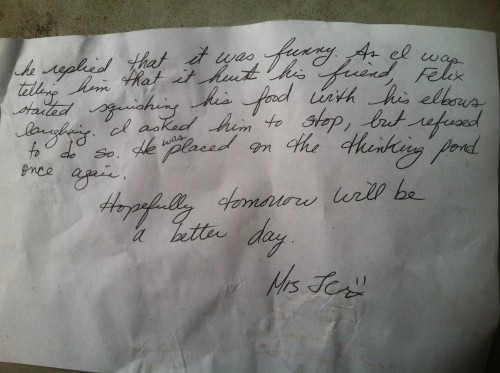 he replied that it was funny. As I was
telling him that it hurt his friend, Felix
started squishing his food with his elbows
laughing. I asked him to stop, but refused
to do so. He was placed on the thinking pond
once again.
Hopefully tomorrow will be
a better day.
Mrs